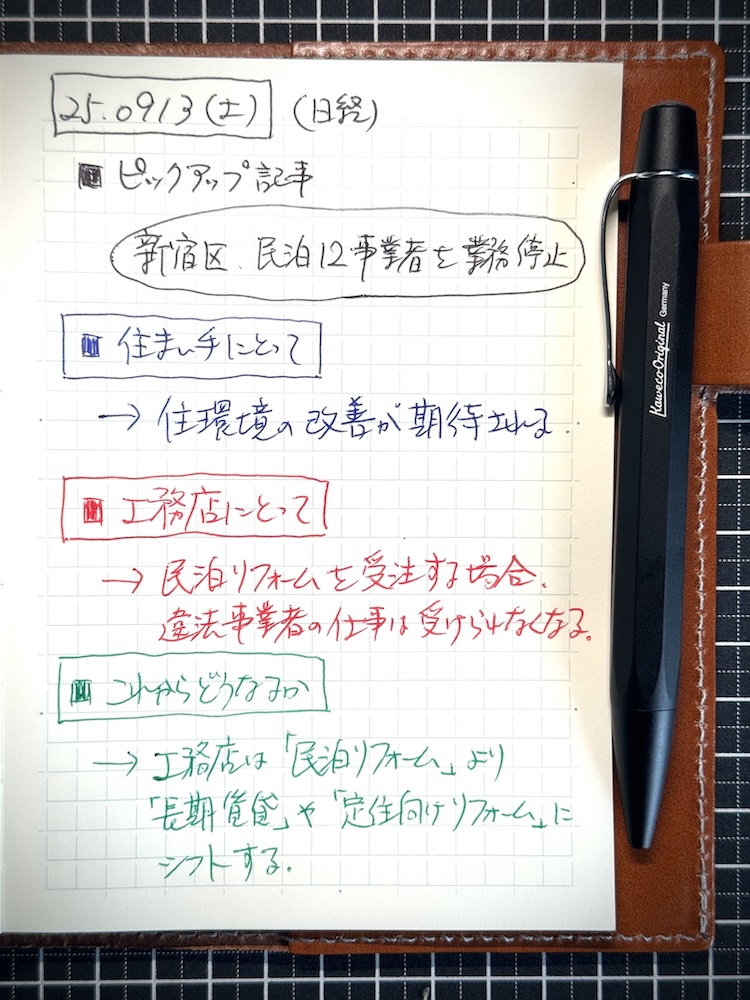 25.0913(土) (日経)
■ ピックアップ記事
新宿区、民泊12事業者を業務停止
■ 住まい手にとって
→ 住環境の改善が期待される。
■ 工務店にとって
→ 民泊リフォームを受注する場合、
違法事業者の仕事は受けられなくなる。
■ これからどうなるか
→ 工務店は「民泊リフォーム」より
「長期賃貸」や「定住向けリフォーム」に
シフトする。
Kaweco-Original Germany